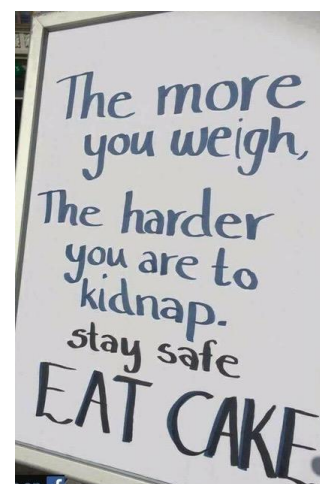 The more
you weigh,
The harder
you are to
kidnap.
stay safe
EAT CAKE